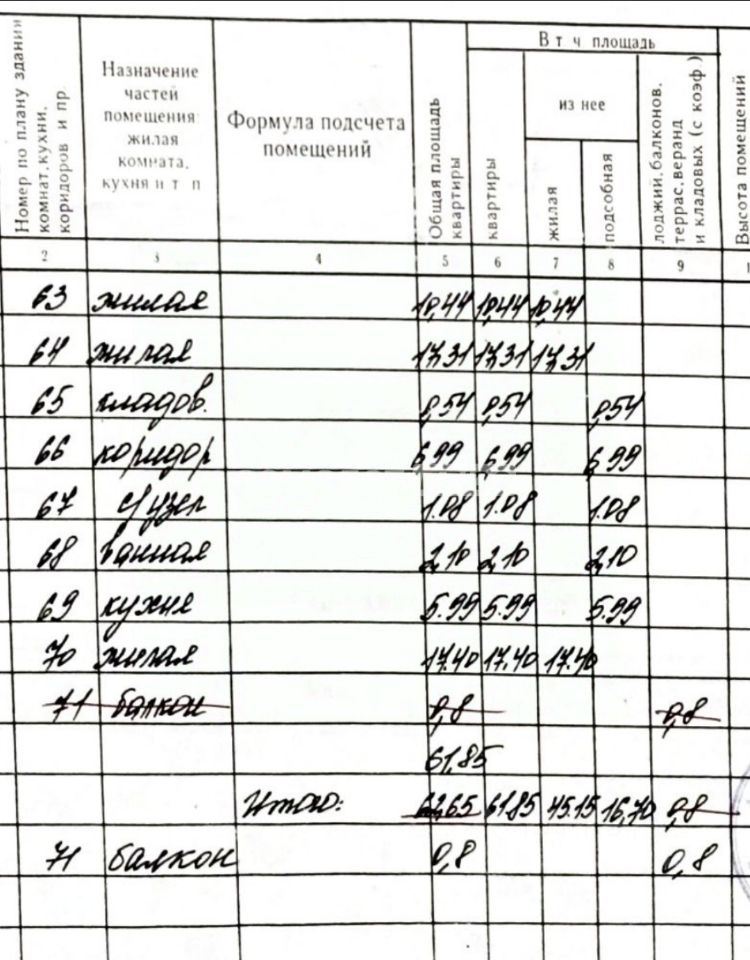 Номер по плану здания комнат, кухни, коридоров и пр.
Назначение
частей
помещения:
жилая
комната,
кухня и т п
Формула подсчета
помещений
Общая площадь
квартиры
В т ч площадь
квартиры
из нее
жилая
подсобная
лоджий, балконов,
террас, веранд
и кладовых (с коэф.)
Высота помещений
2 3 4 5 6 7 8 9 1
63 жилая 10,44 10,44 10,44
64 жилая 17,31 17,31 17,31
65 кладов. 0,54 0,54 0,54
66 коридор 6,99 6,99 6,99
67 с/узел 1.08 1.08 1.08
68 ванная 2,10 2,10 2,10
69 кухня 5.99 5.99 5.99
70 жилая 17.40 17.40 17.40
71 балкон 0,8 0,8
61,85
Итого: 62,65 61,85 45.15 16,70 0,8
71 балкон 0,8 0,8